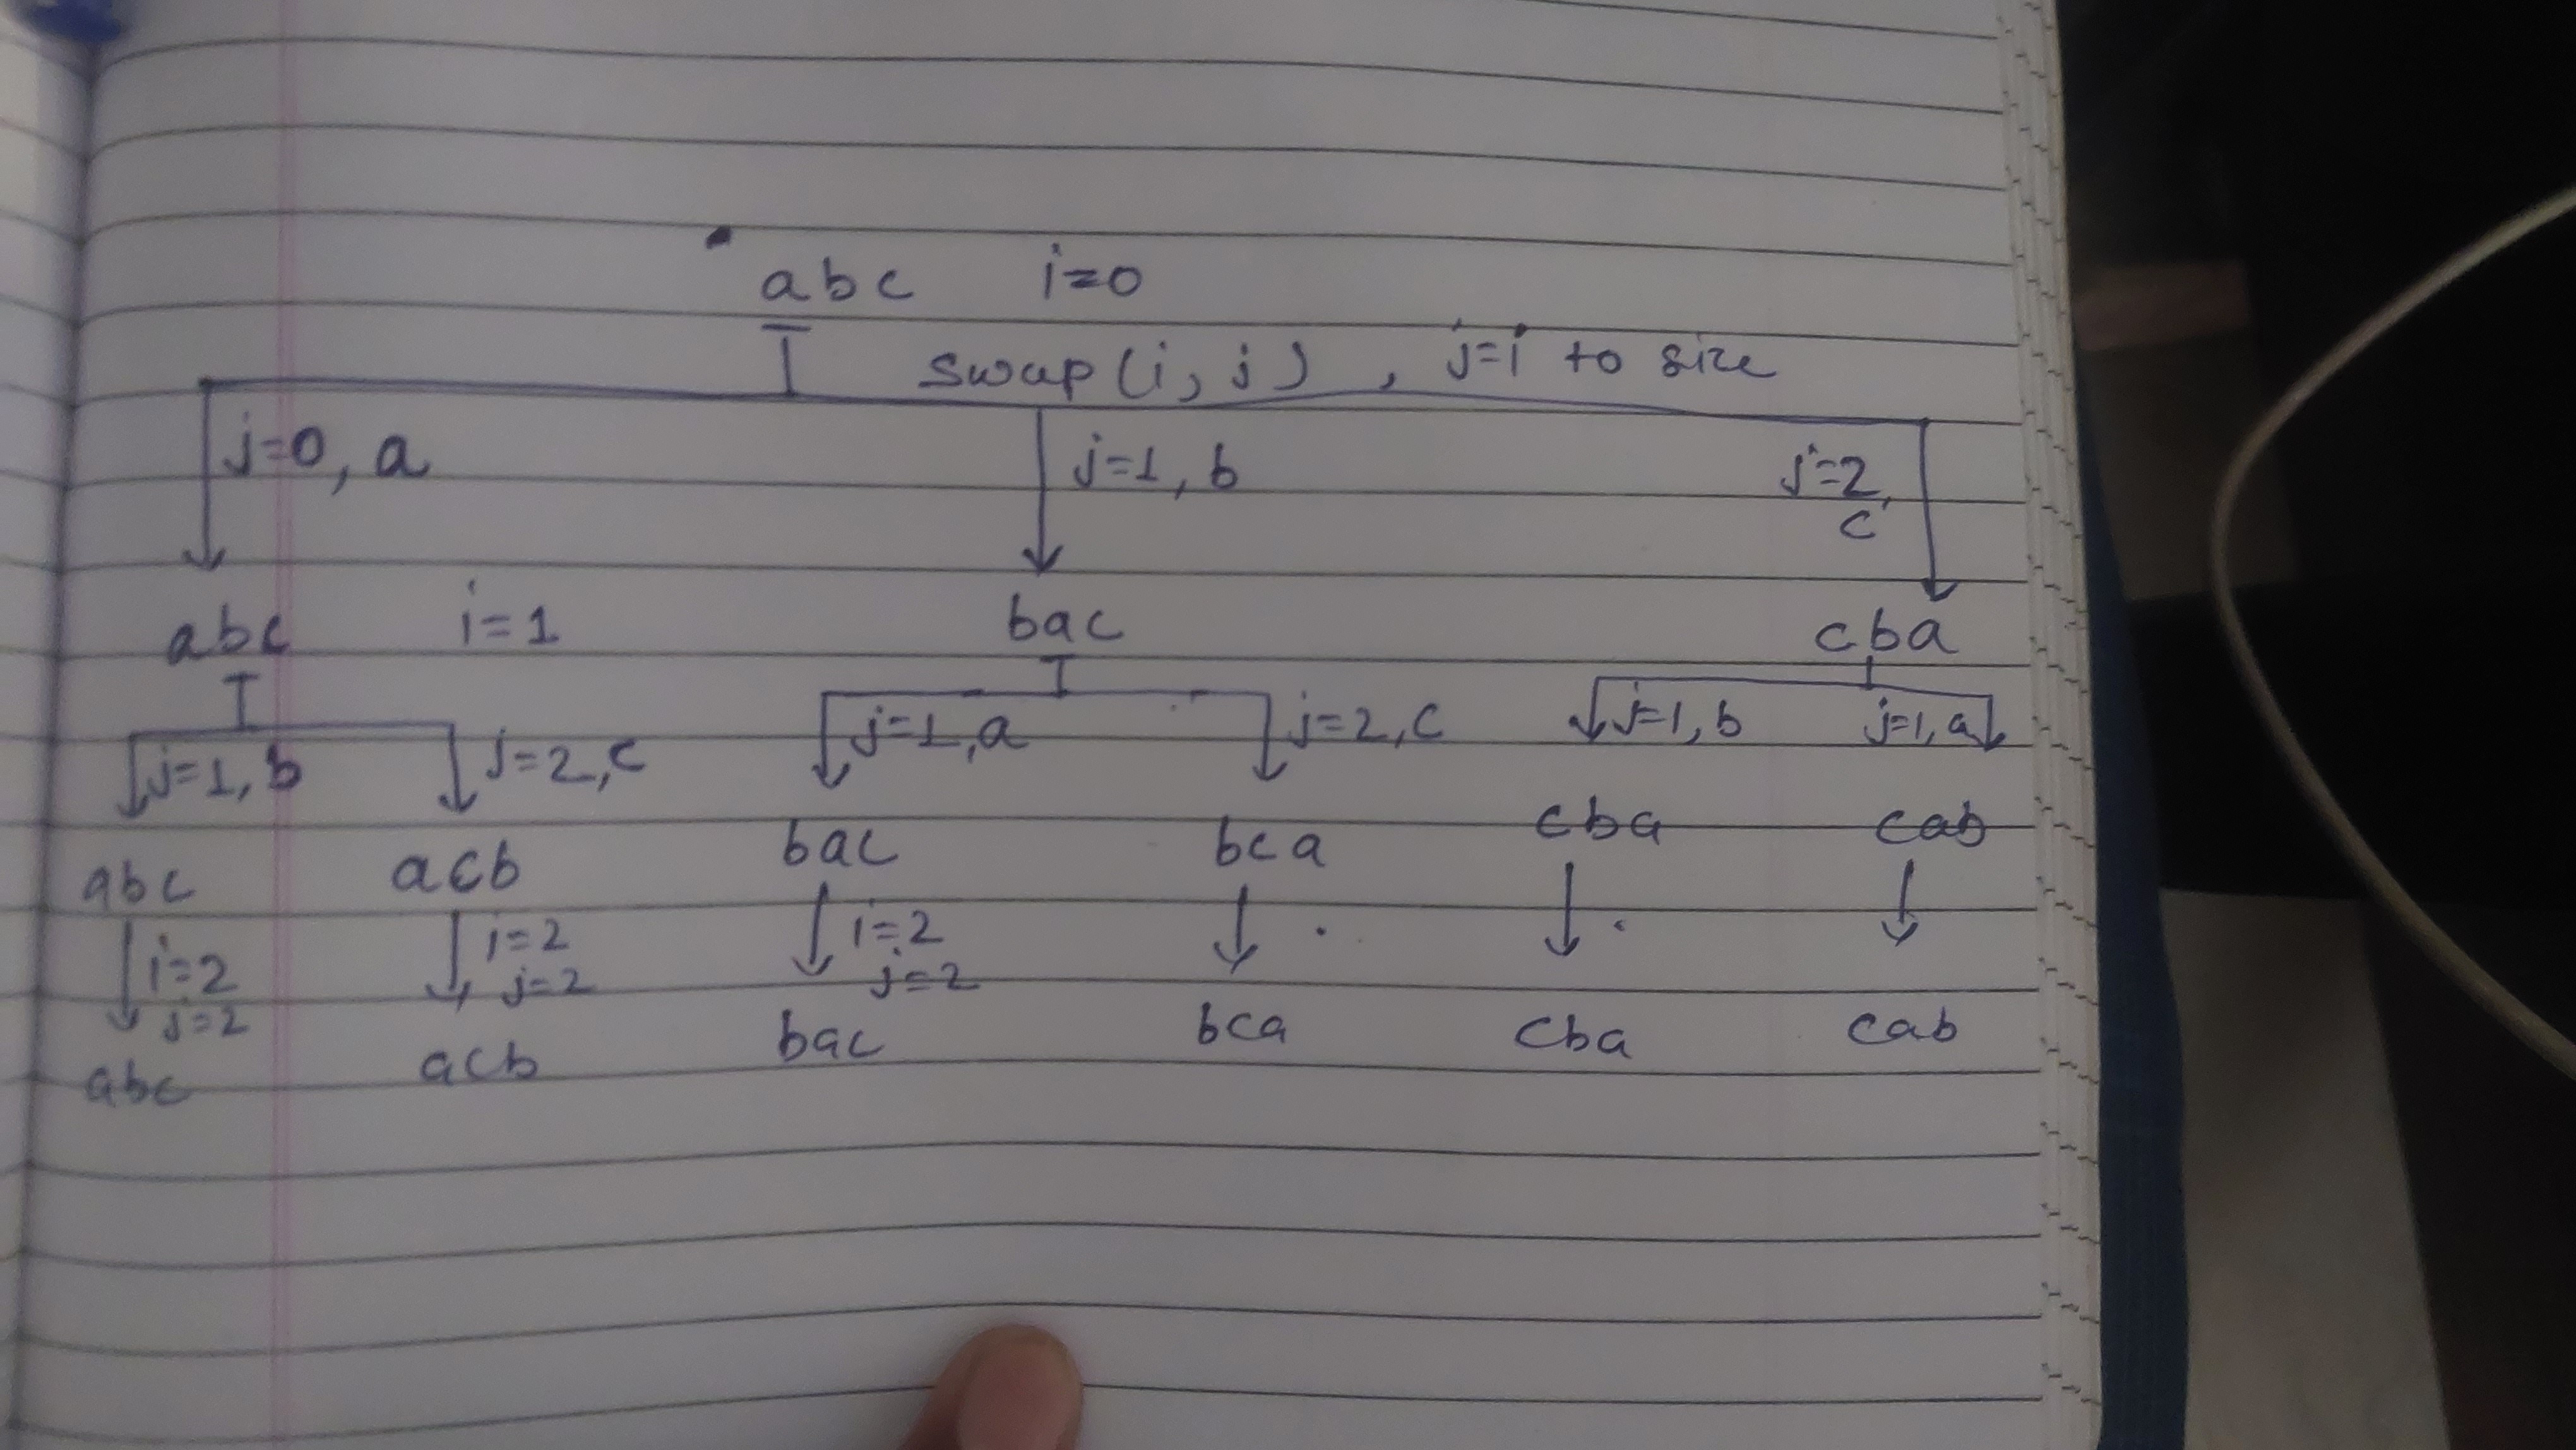 abc i=0
swap(i, j), j=i to size
j=0, a j=1, b j=2,
c
abc i=1 bac cba
j=1, b j=2, c j=1, a j=2, c j=1, b j=1, a
abc acb bac bca cba cab
i=2 i=2 i=2
j=2 j=2 j=2
abc acb bac bca cba cab